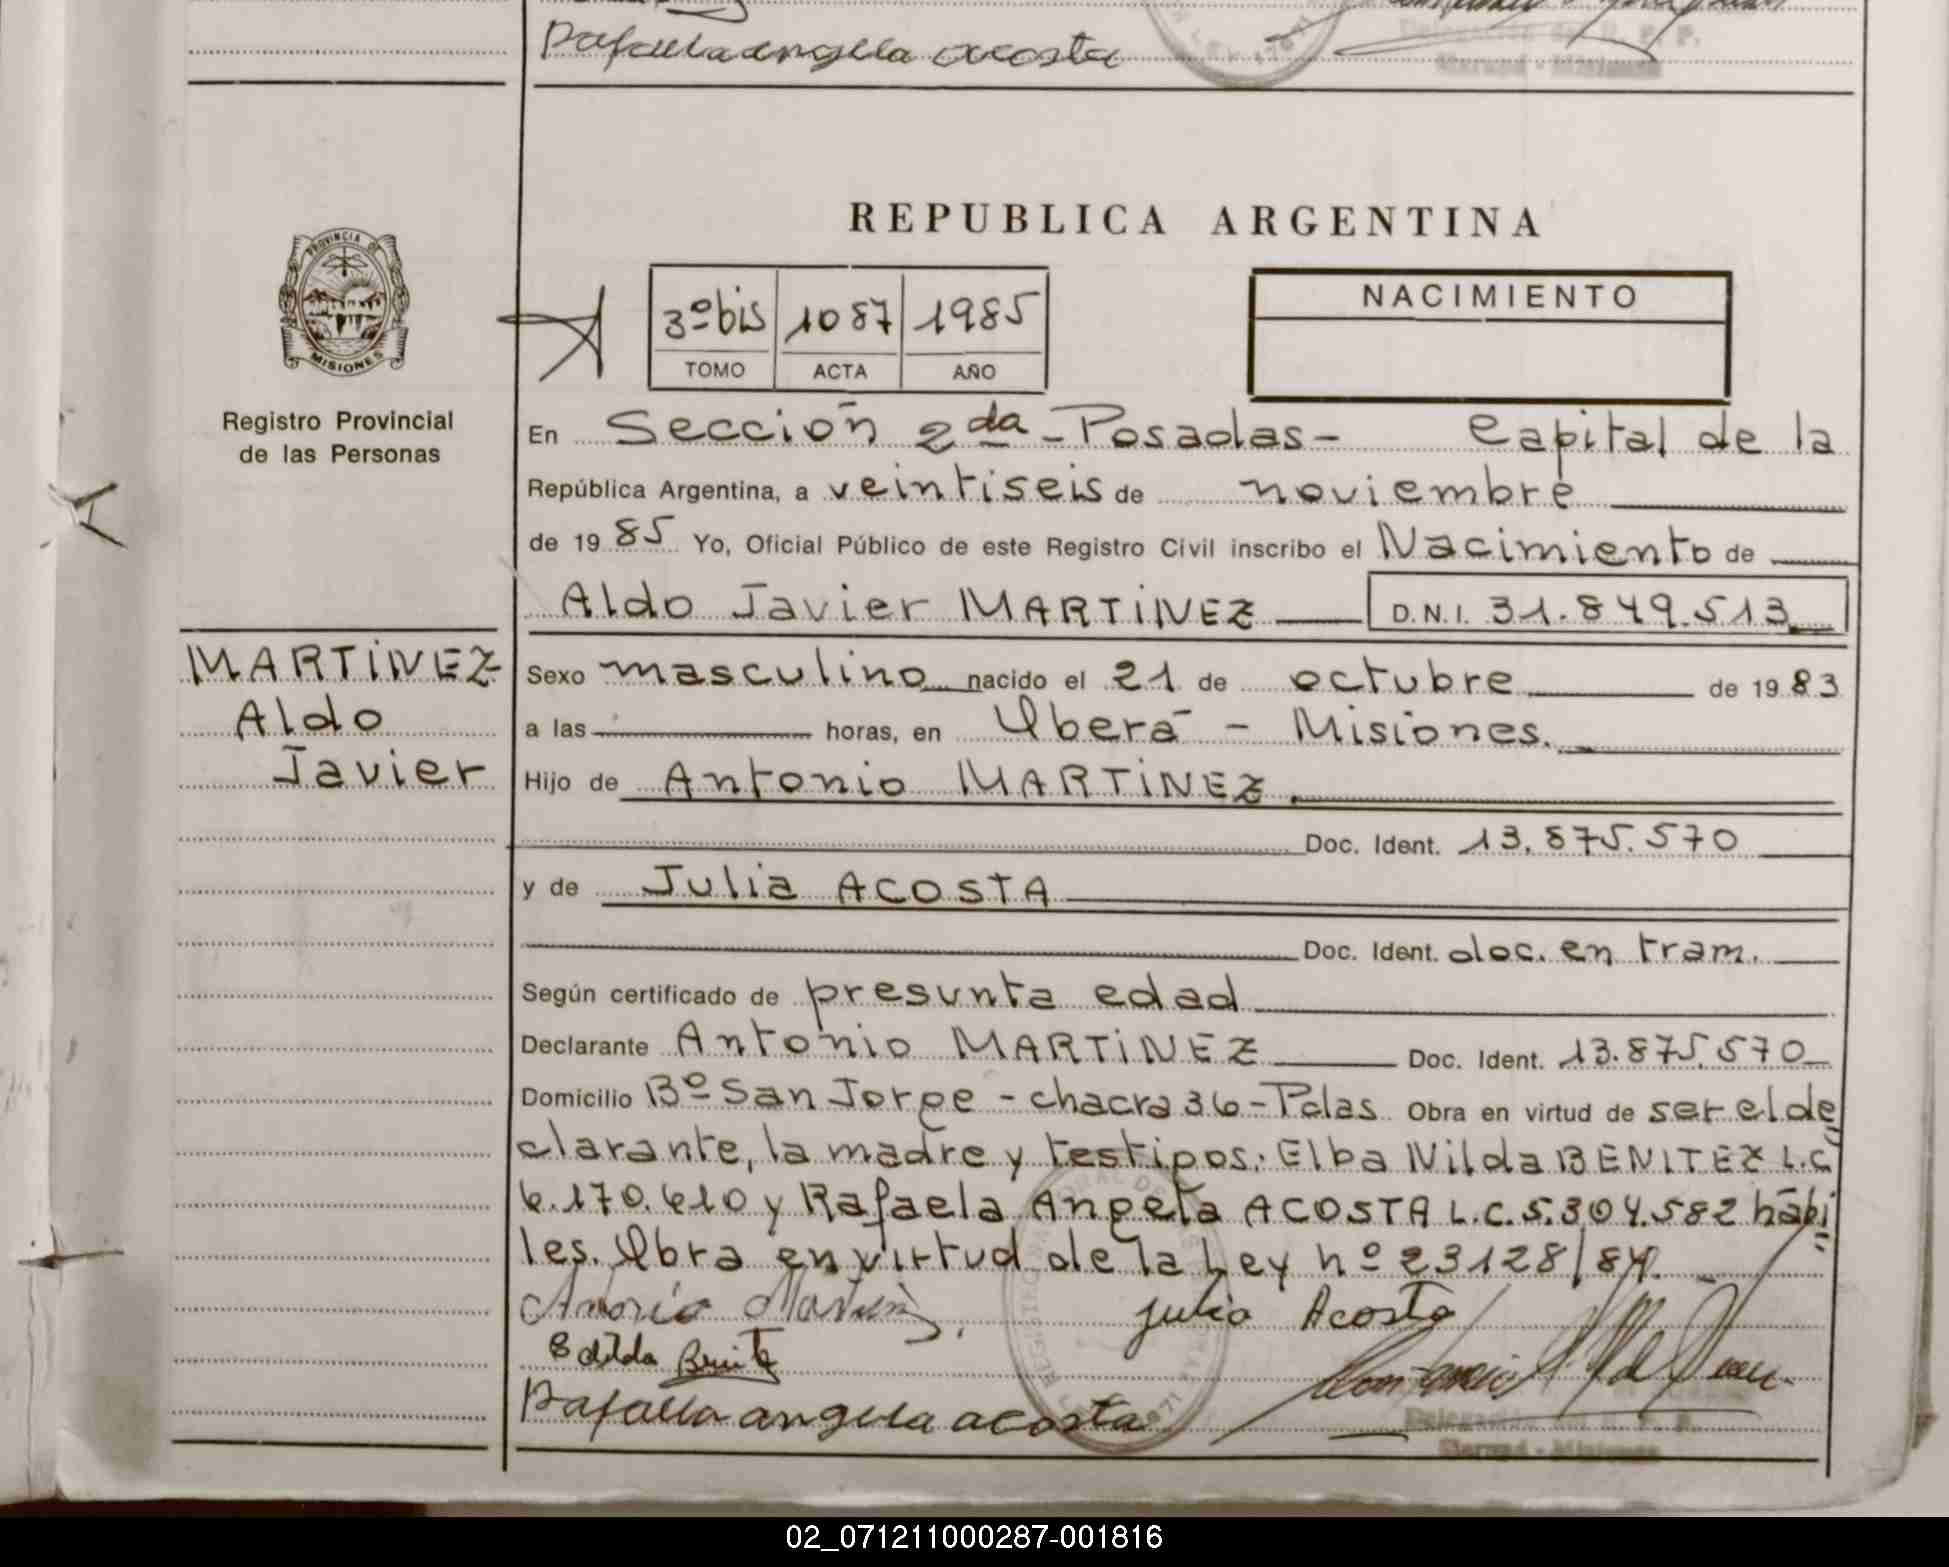 Rafaela angela acosta
REPUBLICA ARGENTINA
PROVINCIA DE
MISIONES
Registro Provincial
de las Personas
3º bis 1087 1985
TOMO ACTA AÑO
NACIMIENTO
En Sección 2da - Posadas - Capital de la
República Argentina, a veintiseis de noviembre
de 1985 Yo, Oficial Público de este Registro Civil inscribo el Nacimiento de
Aldo Javier MARTINEZ D.N.I. 31.849.513
MARTINEZ
Aldo
Javier
Sexo masculino nacido el 21 de octubre de 1983
a las horas, en Oberá - Misiones.
Hijo de Antonio MARTINEZ
Doc. Ident. 13.875.570
y de Julia ACOSTA
Doc. Ident. doc. en tram.
Según certificado de presunta edad
Declarante Antonio MARTINEZ Doc. Ident. 13.875.570
Domicilio Bº San Jorge - chacra 36 - Pdas Obra en virtud de ser el de
clarante, la madre y testigos: Elba Nilda BENITEZ L.C
6.170.610 y Rafaela Angela ACOSTA L.C. 5.304.582 hábi
les. Obra en virtud de la Ley nº 23128/84.
Antonio Martinez julia Acosta
Rafaela angela acosta
02_071211000287-001816